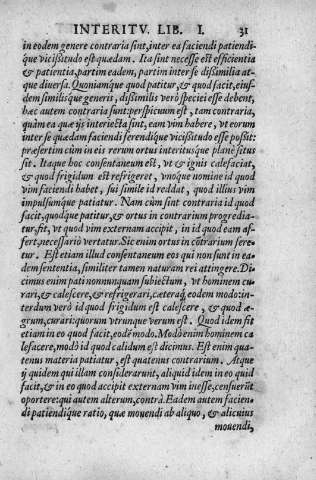 INTERITV. LIB. I. 31
in eodem genere contraria sint, inter ea faciendi patiendi-
que vicißitudo est quædam. Ita sint necesse est efficientia
& patientia, partim eadem, partim inter se dißimilia at-
que diuersa. Quoniamque quod patitur, & quod facit, eius-
dem similisque generis, dißimilis verò speciei esse debent,
hæc autem contraria sunt: perspicuum est, tam contraria,
quàm ea quæ ijs interiecta sunt, eam vim habere, vt eorum
inter se quædam faciendi ferendique vicißitudo esse poßit:
præsertim cùm in eis rerum ortus interitusque planè situs
sit. Itaque hoc consentaneum est, vt & ignis calefaciat,
& quod frigidum est refrigeret, vnoque nomine id quod
vim faciendi habet, sui simile id reddat, quod illius vim
impulsumque patiatur. Nam cùm sint contraria id quod
facit, quodque patitur, & ortus in contrarium progredia-
tur, fit, vt quod vim externam accipit, in id quod eam af-
fert, necessariò vertatur. Sic enim ortus in cōtrarium fere-
tur. Est etiam illud consentaneum eos qui non sunt in ea-
dem sententia, similiter tamen naturam rei attingere. Di-
cimus enim pati nonnunquam subiectum, vt hominem cu-
rari, & calescere, & refrigerari, cæteraq́; eodem modo: in-
terdum verò id quod frigidum est calescere, & quod æ-
grum, curari: quorum vtrunque verum est. Quod idem fit
etiam in eo quod facit, eodē modo. Modò enim hominem ca
lefacere, modò id quod calidum est dicimus. Est enim qua-
tenus materia patiatur, est quatenus contrarium. Atque
ij quidem qui illam considerarunt, aliquid idem in eo quod
facit, & in eo quod accipit externam vim inesse, censuerūt
oportere: qui autem alterum, contrà. Eadem autem facien-
di patiendique ratio, quæ mouendi ab aliquo, & alicuius
mouendi,